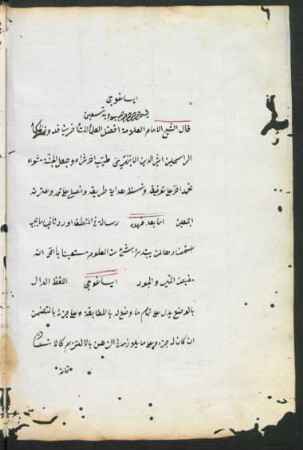 ايساغوجي
نستعين
قال الشيخ الامام العلامة افضل العلماء المتأخرين قدوة الحكماء
الراسخين اثير الدين الابهري طيب الله ثراه وجعل الجنة مثواه
نحمد الله على توفيقه ونسئله هداية طريقه ونصلي على محمد وعترته
اجمعين اما بعد فهذه رسالة في المنطق اوردنا فيها ما يجب
استحضاره لمن يبتدئ بشئ من العلوم مستعينا بالله انه
مفيض الخير والجود ايساغوجي اللفظ الدال
بالوضع يدل على تمام ما وضع له بالمطابقة وعلى جزئه بالتضمن
ان كان له جزء وعلى ما يلازمه في الذهن بالالتزام كالانسان
فانه